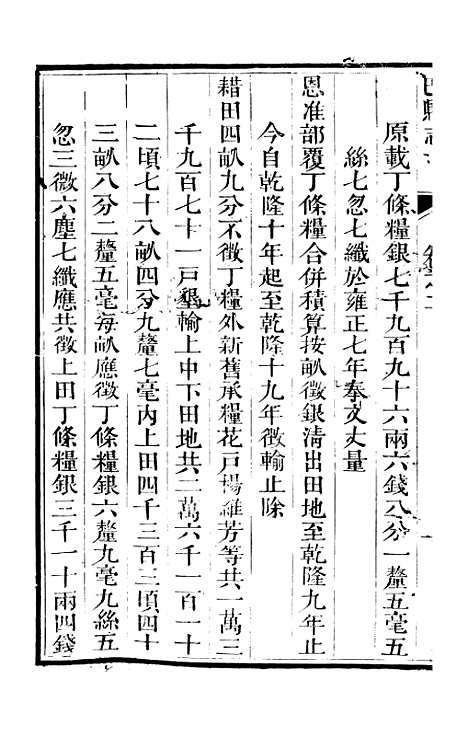 巴縣志
原載丁條糧銀七千九百九十六兩六錢八分一釐五毫五
絲七忽七纖於雍正七年奉文丈量
恩准部覆丁條糧合併積算按畝徵銀清出田地至乾隆九年止
今自乾隆十年起至乾隆十九年徵輸止除
耤田四畝九分不徵丁糧外新舊承糧花戶楊維芳等共一萬三
千九百七十一戶墾輸上中下田地共二萬六千一百一十
二頃七十八畝四分九釐七毫內上田四千三百三頃四十
三畝八分二釐五毫每畝應徵丁條糧銀六釐九毫九絲五
忽三微六塵七纖應共徵上田丁條糧銀三千一十兩四錢